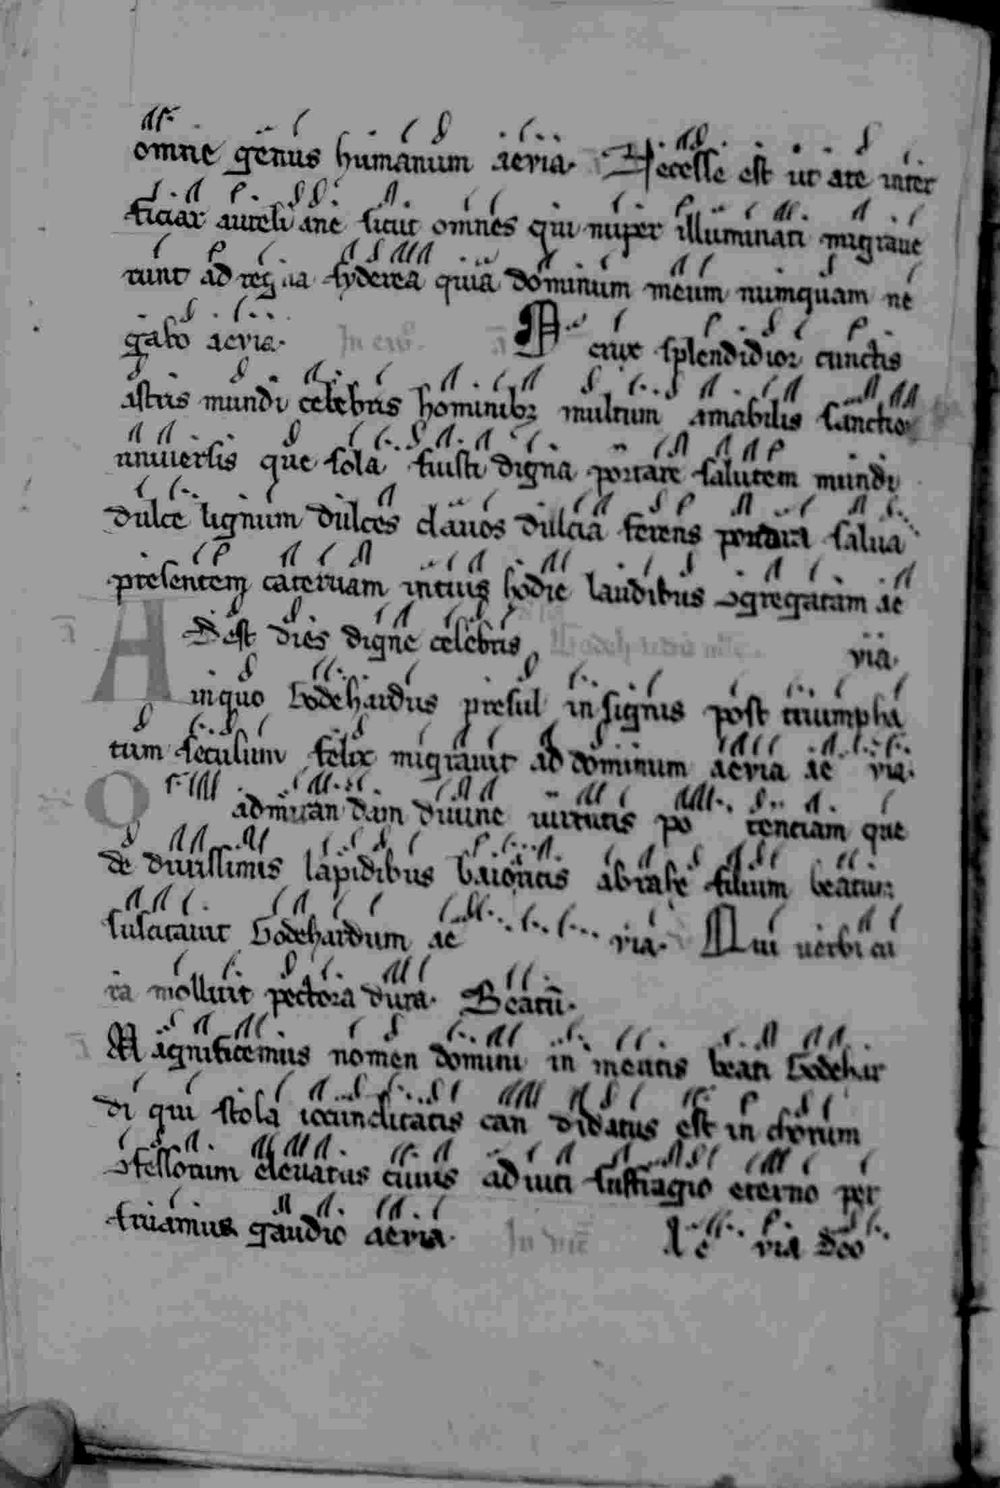 omne genus humanum aevia. Necesse est ut a te inter
ficiar aureliane sicut omnes qui nuper illuminati migrave
runt ad regna syderea quia dominum meum numquam ne
gabo aevia. In ev̄. a̅ O crux splendidior cunctis
astris mundi celebris hominibꝫ multum amabilis sanctior
universis que sola fuisti digna portare talutem mundi
dulce lignum dulces clavos dulcia ferens pondera salva
presentem catervam intuis hodie laudibus ɔgregatam ae
a̅ Adest dies digne celebris via.
in quo Godehardus presul insignis post triumpha
tum seculum felix migravit ad dominum aevia ae via.
O admirandam divine virtutis potenciam que
de durissimis lapidibus baioariis abrahe filium beatum
suscitavit Godehardum ae via. Qui verbi cu
ra mollivit pectora dura. Beatū.
a̅ Magnificemus nomen domini in meritis beati Godehar
di qui stola iocunditatis candidatus est in chorum
ɔfessorum elevatus cuius adiuti suffragio eterno per
fruamur gaudio aevia. Ae via deo